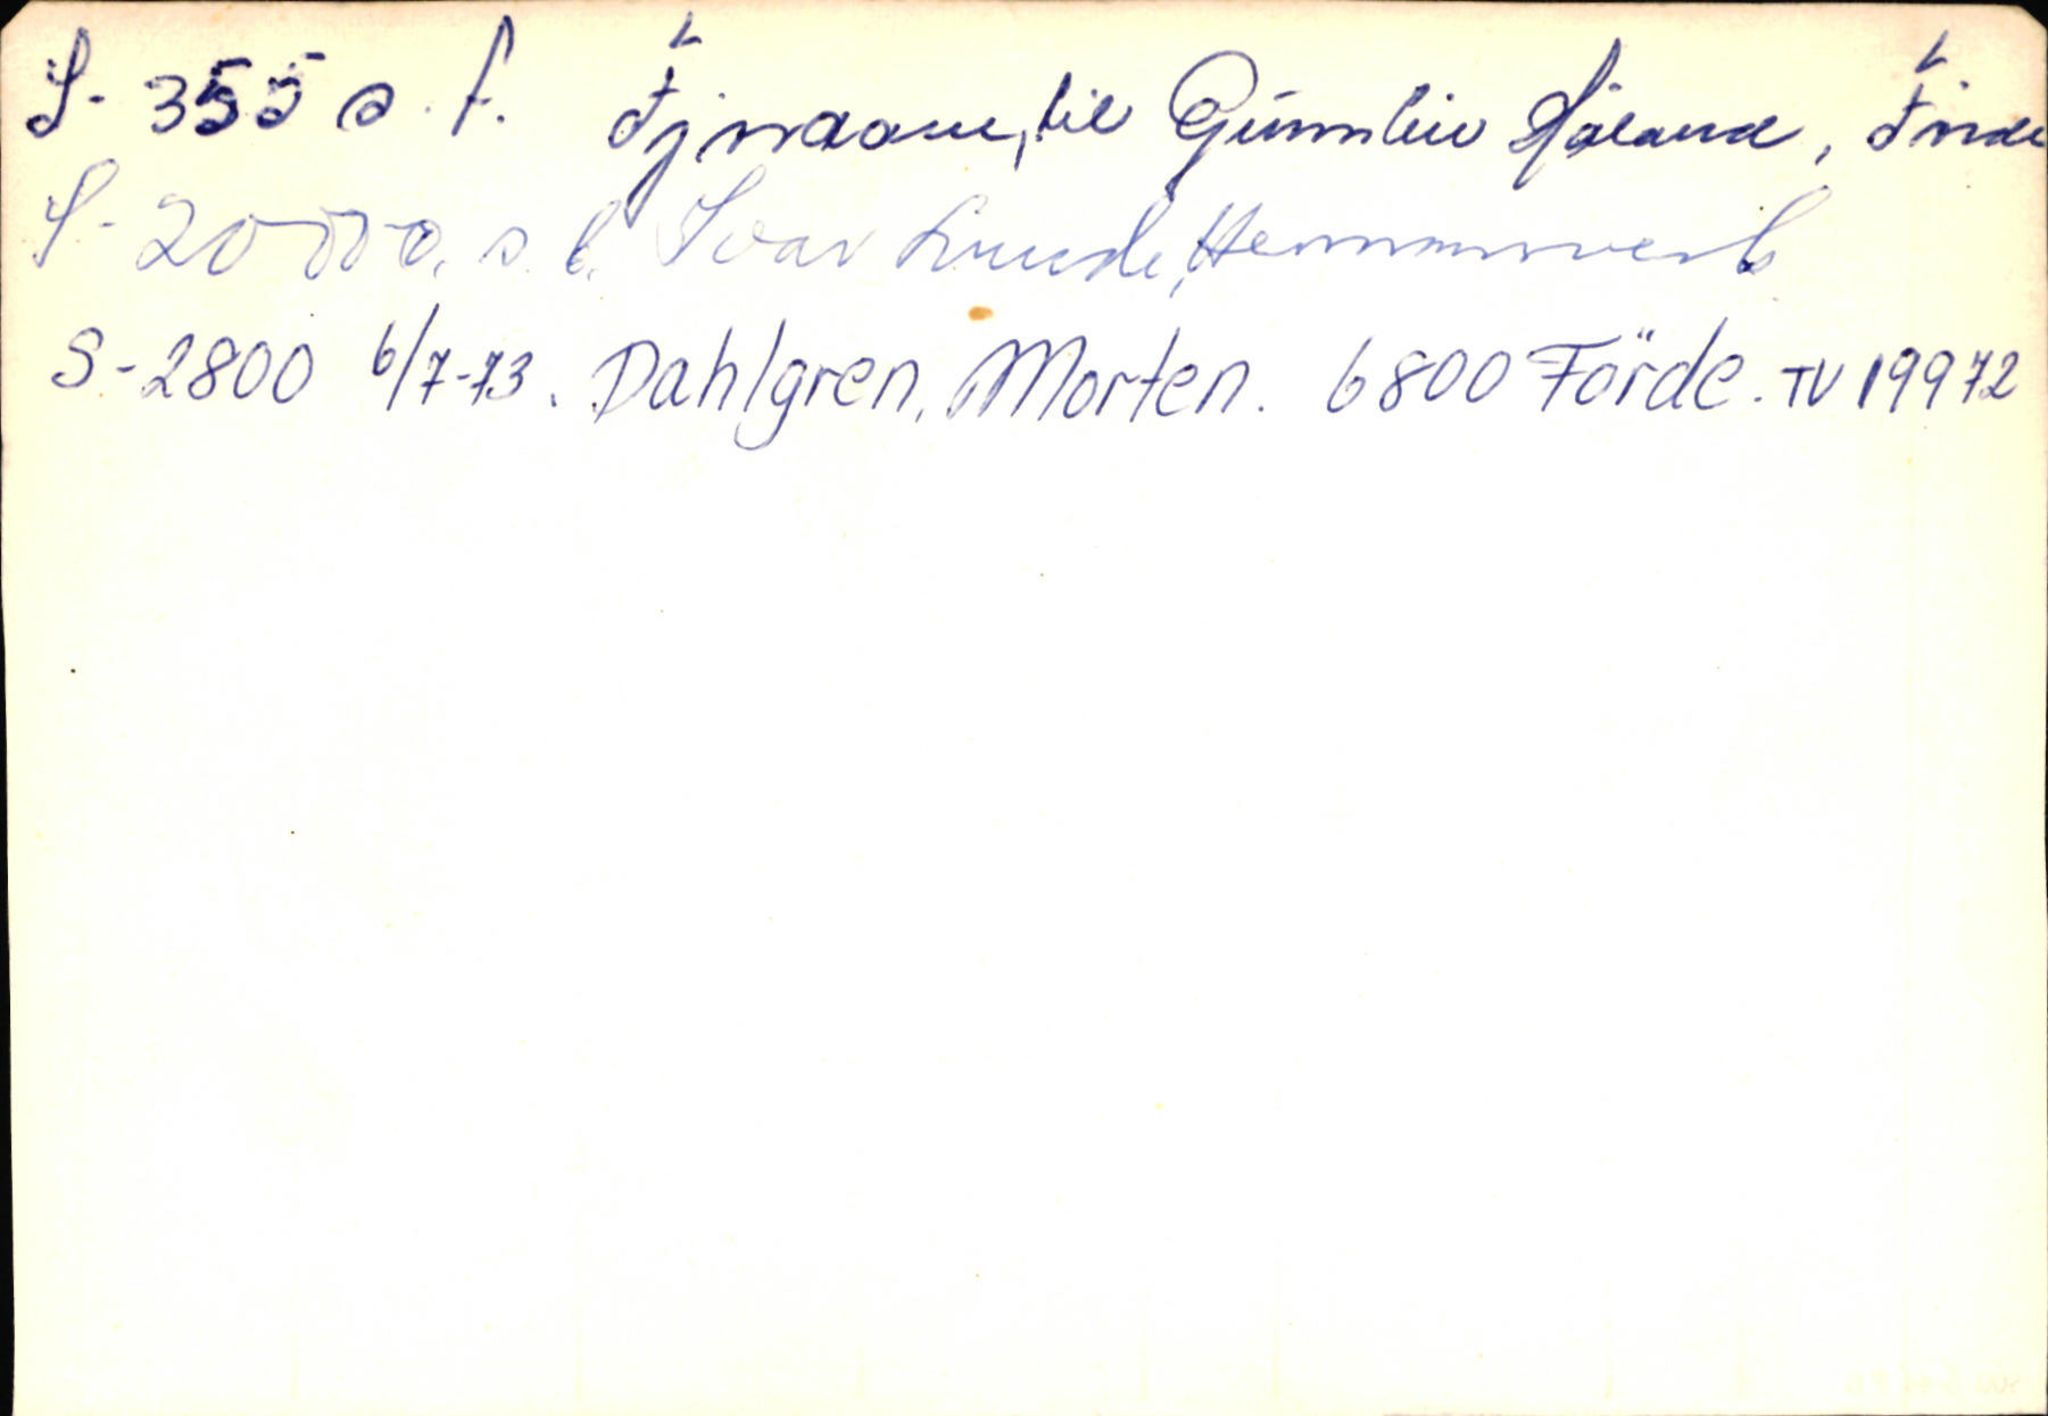 S-355 s. f. Fj naaue, til Gunnleiv Håland, Förde
S-20000. s. b. Ivar Lunde, Hermansverk
S-2800 6/7-73. Dahlgren, Morten. 6800 Förde. TV 19972